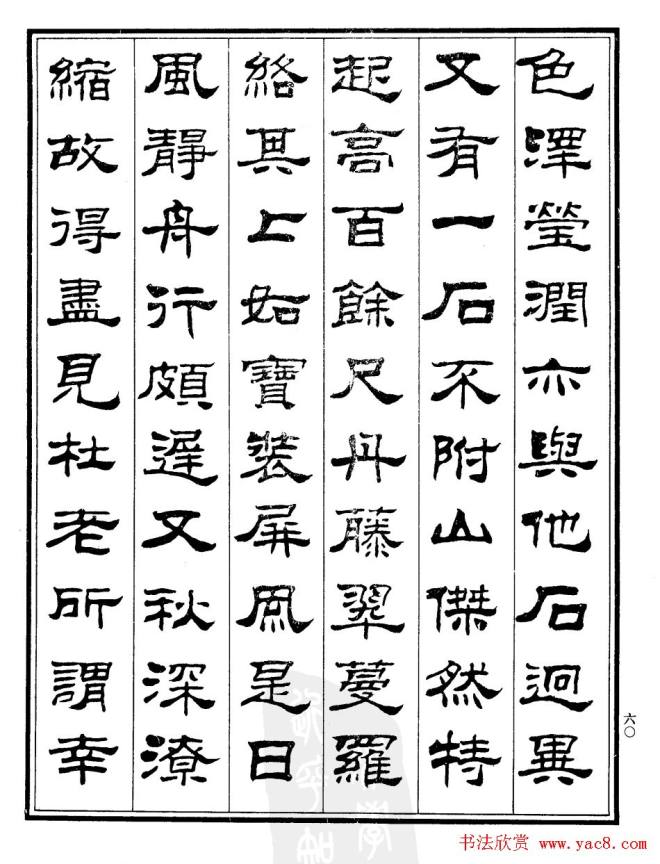 色澤瑩潤亦與他石迥異
又有一石不附山傑然特
起高百餘尺丹藤翠蔓羅
絡其上如寶裝屏風是日
風靜舟行頗遲又秋深潦
縮故得盡見杜老所謂幸
六〇
书法欣赏 www.yac8.com